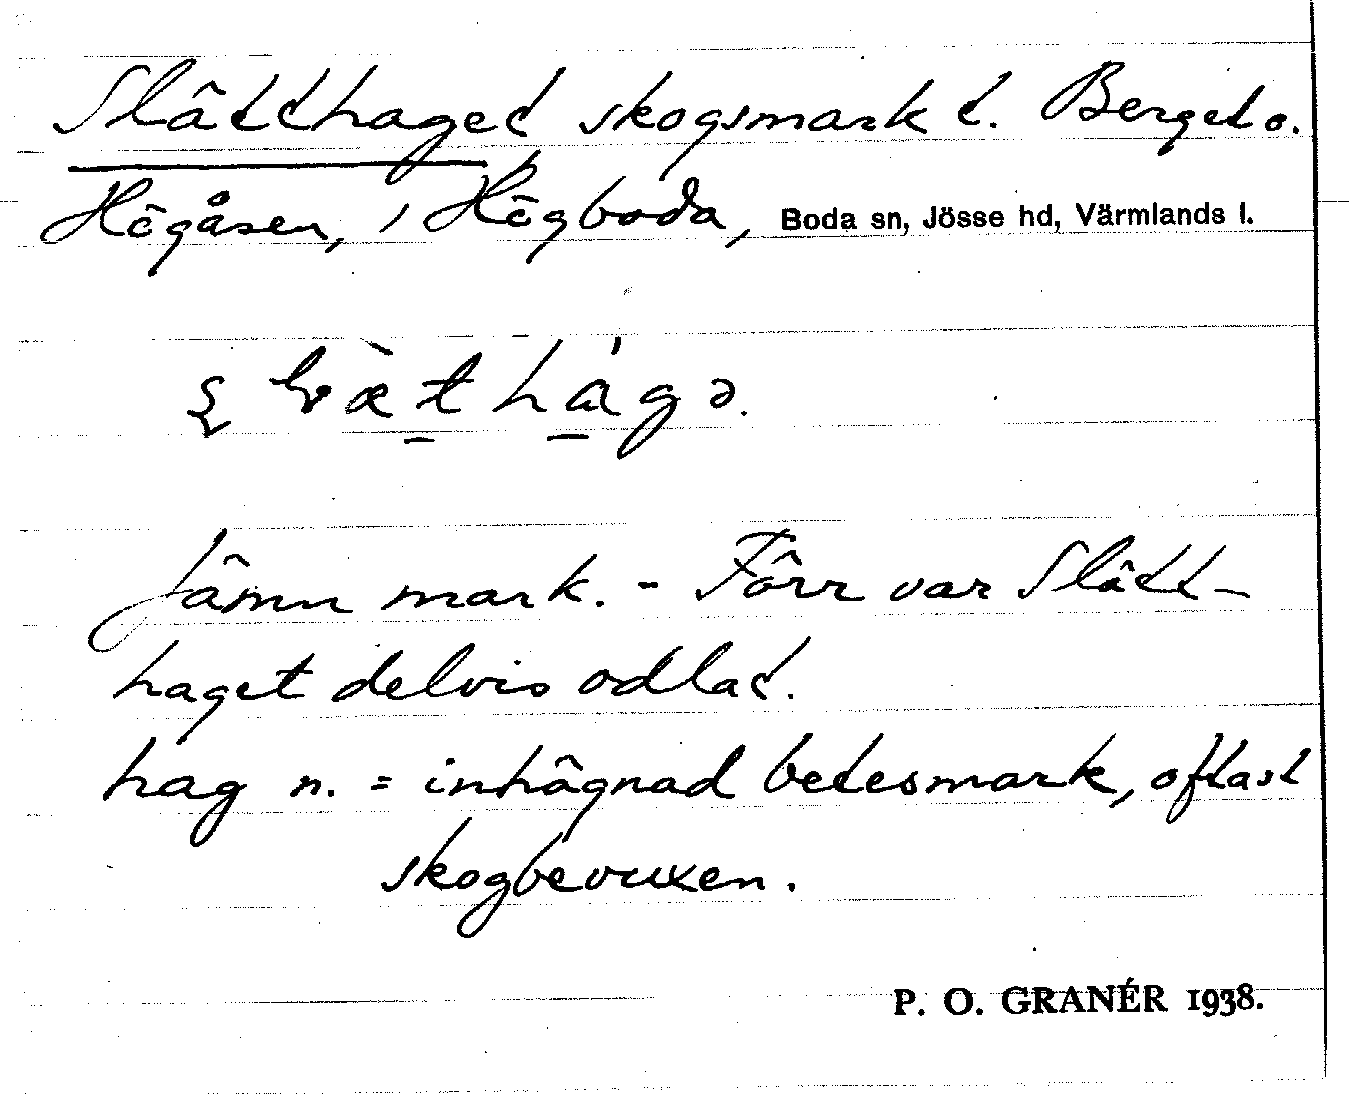 Slätthaget skogsmark t. Berget o.
Högåsen, i Högboda, Boda sn, Jösse hd, Värmlands l.
Jämn mark. - Förr var Slätt-
haget delvis odlat.
hag n. = inhägnad betesmark, oftast
skogbevuxen.
P. O. GRANÉR 1938.